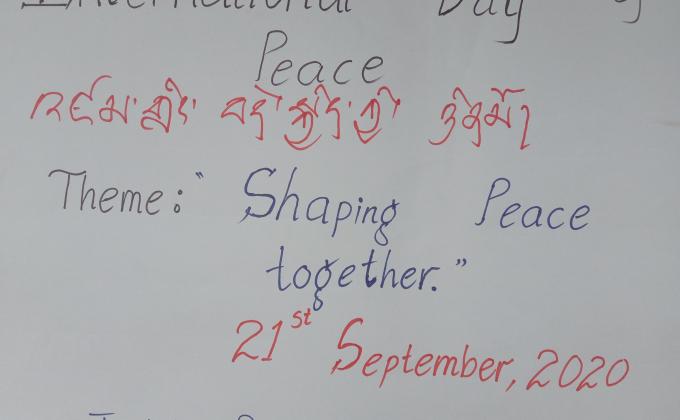 International Day of
Peace
འཛམ་གླིང་ བདེ་སྐྱིད་ཀྱི་ ཉིནམོ།
Theme: "Shaping Peace
together."
21st September, 2020